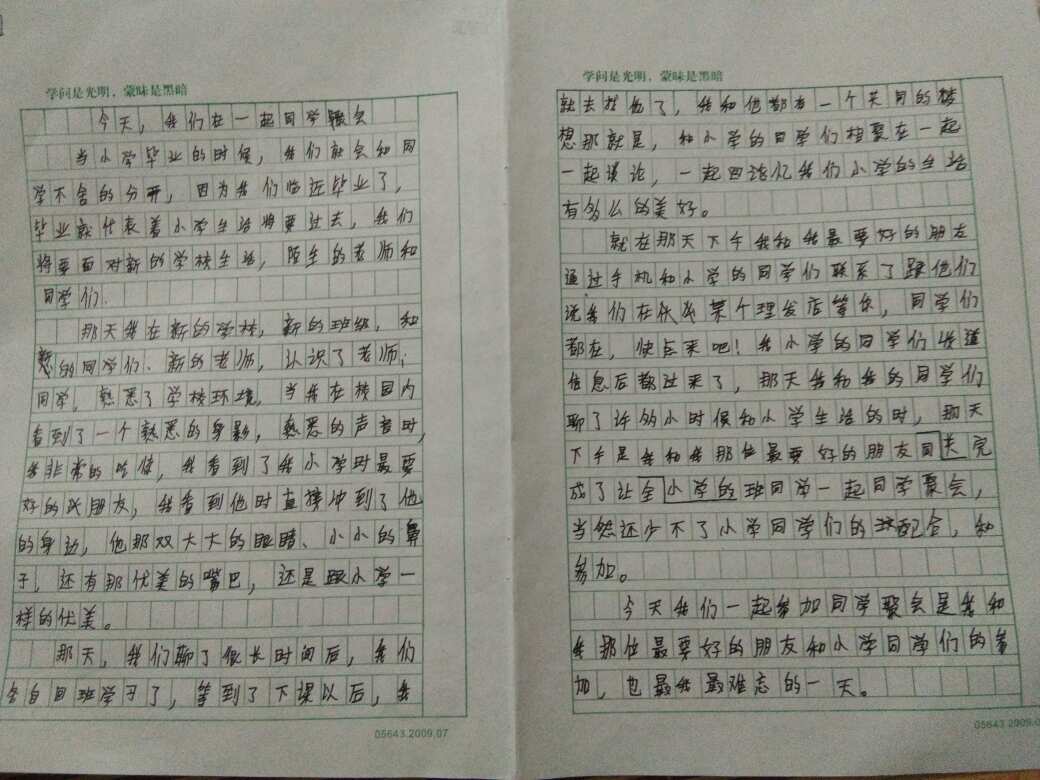 学问是光明，蒙昧是黑暗
今天，我们在一起同学聚会
当小学毕业的时候，我们就会和同
学不舍的分开，因为我们临近毕业了，
毕业就代表着小学生活将要过去，我们
将要面对新的学校生活，陌生的老师和
同学们.
那天我在新的学校，新的班级，和
的同学们、新的老师，认识了老师，
同学，熟悉了学校环境，当我在校园内
看到了一个熟悉的身影，熟悉的声音时，
我非常的，我看到了我小学时最要
好的朋友，我看到他时直接冲到了他
的身边，他那双大大的眼睛、小小的鼻
子，还有那优美的嘴巴，还是跟小学一
样的优美。
那天，我们聊了很长时间后，我们
各自回班学习了，等到了下课以后，我
05643.2009.07
学问是光明，蒙昧是黑暗
就去找他了，我和他都有一个共同的梦
想那就是，和小学的同学们相聚在一起
一起谈论，一起回忆我们小学的生活
有多么的美好。
就在那天下午我和我最要好的朋友
通过手机和小学的同学们联系了跟他们
说我们在某个理发店等你，同学们
都在，快点来吧！我小学的同学们知道
信息后都过来了，那天我和我的同学们
聊了许多小时候和小学生活的时，那天
下午是我和我那位最要好的朋友同共完
成了让全小学的班同学一起同学聚会，
当然还少不了小学同学们的配合，和
参加。
今天我们一起参加同学聚会是我和
我那位最要好的朋友和小学同学们的参
加，也最我最难忘的一天。
05643.2009.0